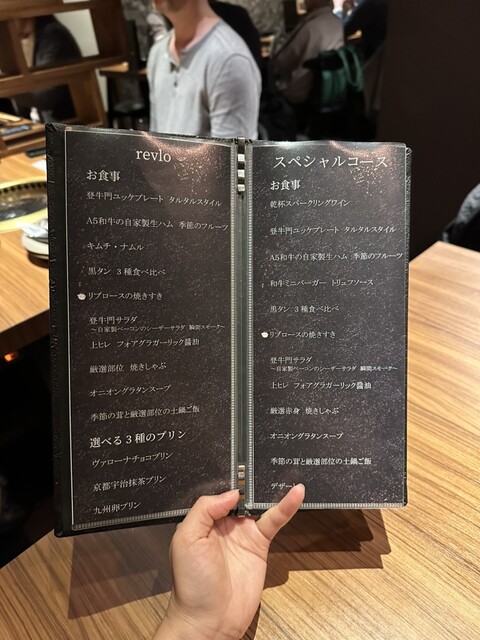 revlo
お食事
登牛門ユッケプレート タルタルスタイル
A5和牛の自家製生ハム 季節のフルーツ
キムチ・ナムル
黒タン 3種食べ比べ
リブロースの焼きすき
登牛門サラダ
〜自家製ベーコンのシーザーサラダ 瞬間スモーク〜
上ヒレ フォアグラガーリック醤油
厳選部位 焼きしゃぶ
オニオングラタンスープ
季節の茸と厳選部位の土鍋ご飯
選べる3種のプリン
ヴァローナチョコプリン
京都宇治抹茶プリン
九州卵プリン
スペシャルコース
お食事
乾杯スパークリングワイン
登牛門ユッケプレート タルタルスタイル
A5和牛の自家製生ハム 季節のフルーツ
和牛ミニバーガー トリュフソース
黒タン 3種食べ比べ
リブロースの焼きすき
登牛門サラダ
〜自家製ベーコンのシーザーサラダ 瞬間スモーク〜
上ヒレ フォアグラガーリック醤油
厳選赤身 焼きしゃぶ
オニオングラタンスープ
季節の茸と厳選部位の土鍋ご飯
デザート